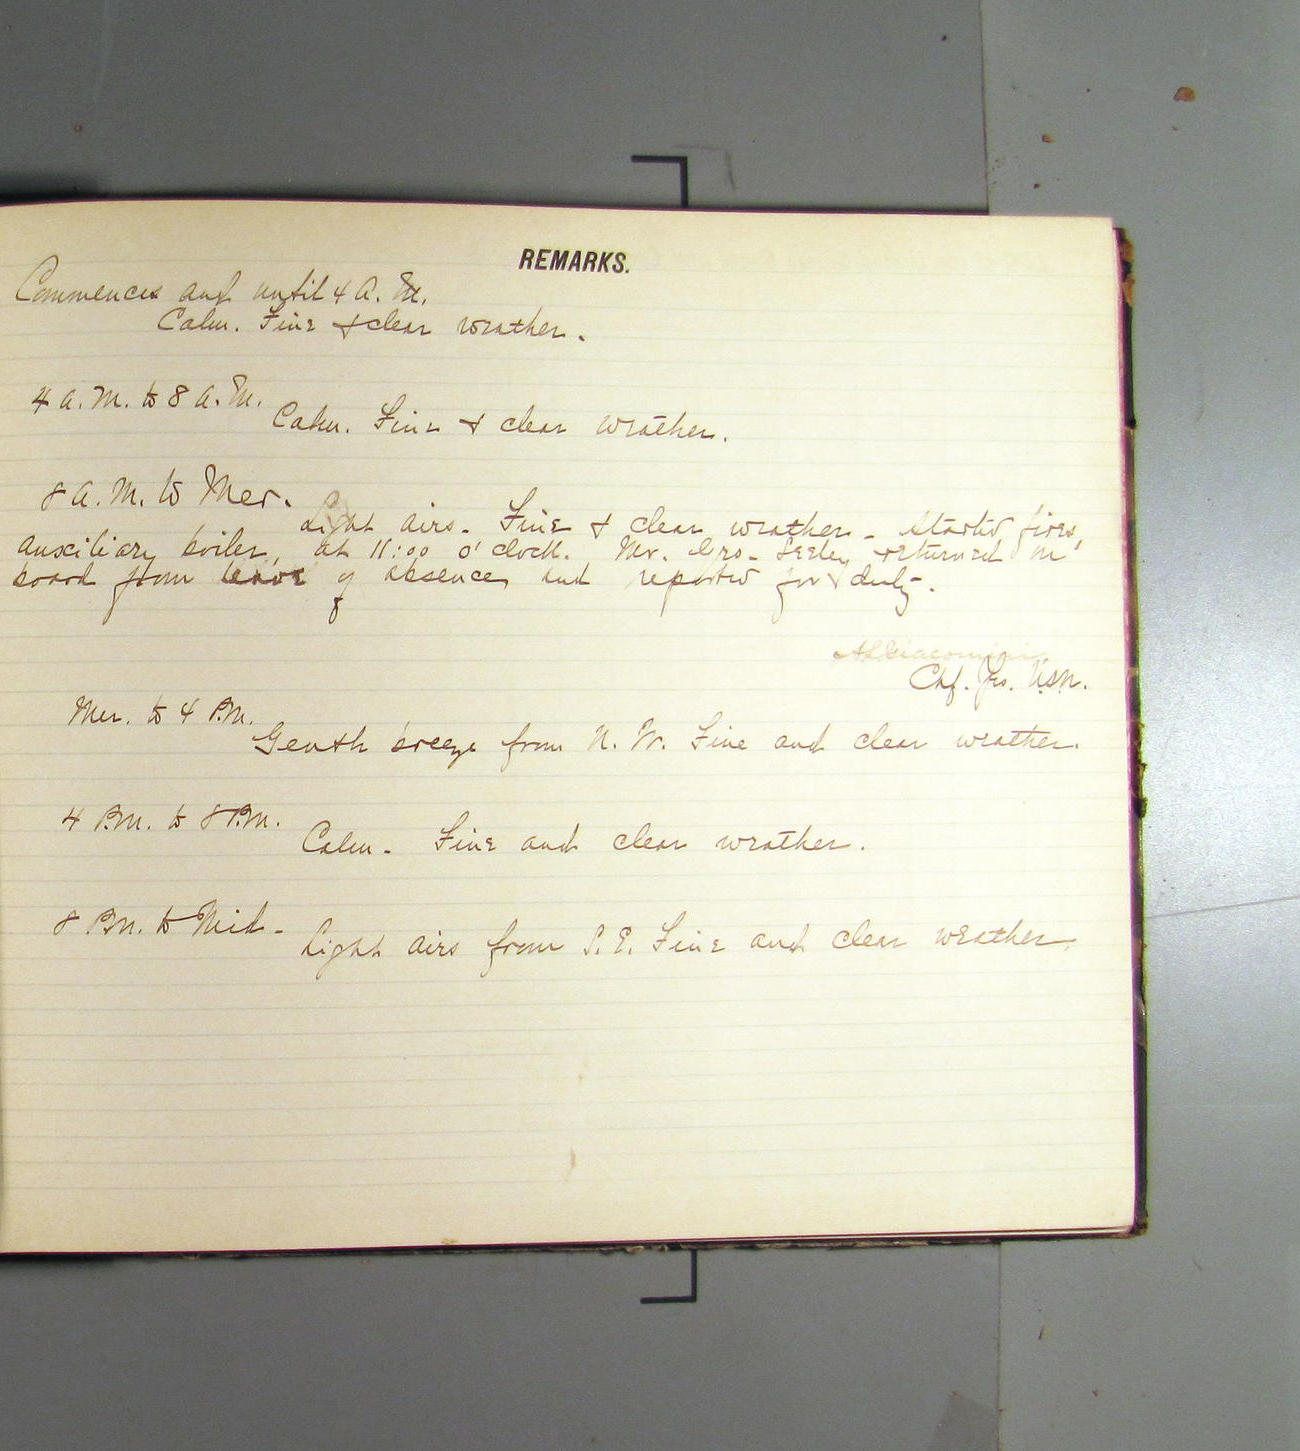 REMARKS.
Commences and until 4 A. M.
Calm. Fine & clear weather.
4 a. M. to 8 A. M.
Calm. Fine & clear weather.
8 a. M. to Mer.
Light airs. Fine & clear weather. Started fires,
auxiliary boiler, at 11:00 o'clock. Mr. Geo. Seeley returned on
board from leave of absence, and reported for duty.
Chf. U.S.N.
Mer. to 4 P.M.
Gentle breeze from N. W. Fine and clear weather.
4 P.M. to 8 P.M.
Calm. Fine and clear weather.
8 P.M. to Mid.
Light airs from S. E. Fine and clear weather.